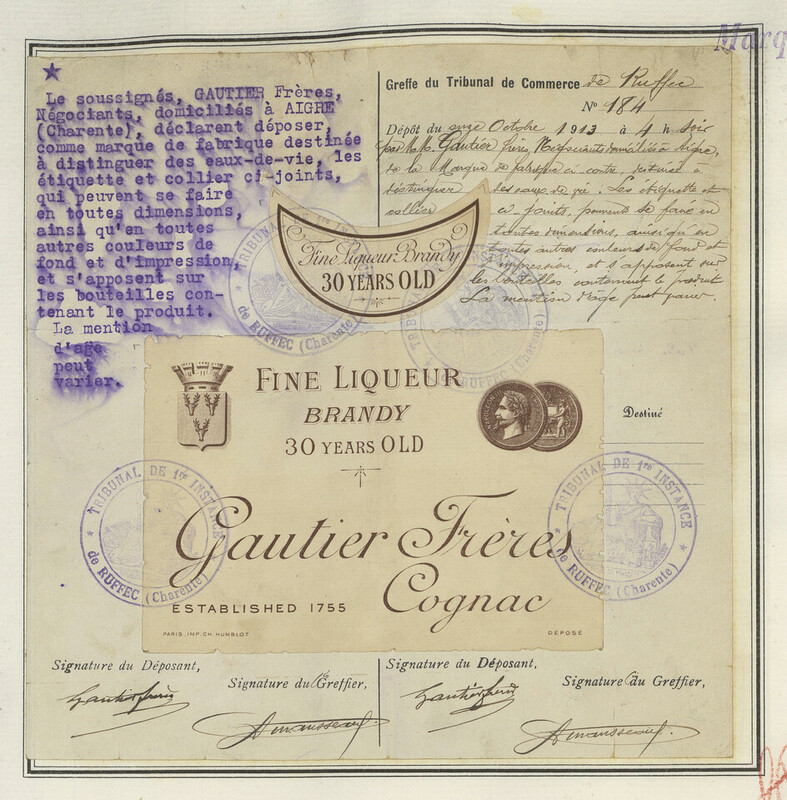 Marq
Le soussignés, GAUTIER Frères,
Négociants, domiciliés à AIGRE
(Charente), déclarent déposer,
comme marque de fabrique destinée
à distinguer des eaux-de-vie, les
étiquette et collier ci-joints,
qui peuvent se faire
en toutes dimensions,
ainsi qu'en toutes
autres couleurs de
fond et d'impression,
et s'apposent sur
les bouteilles con-
tenant le produit.
La mention
d'age
peut
varier.
Greffe du Tribunal de Commerce de Ruffec
No 184
Dépôt du onze Octobre 1913 à 4 h soir
par MM. Gautier frères, Négociants domiciliés à Aigre,
de la Marque de fabrique ci contre, destinée à
distinguer des eaux de vie. Les étiquette et
collier ci-joints, peuvent se faire en
toutes dimensions, ainsi qu'en
toutes autres couleurs de fond et
impression, et s'apposent sur
les bouteilles contenant le produit
La mention d'âge peut varier.
Fine Liqueur Brandy
30 YEARS OLD
TRIBUNAL DE 1re INSTANCE
de RUFFEC (Charente)
TRIBUNAL DE 1re INSTANCE
de RUFFEC (Charente)
FINE LIQUEUR
BRANDY
30 YEARS OLD
Destiné
TRIBUNAL DE 1re INSTANCE
de RUFFEC (Charente)
TRIBUNAL DE 1re INSTANCE
de RUFFEC (Charente)
Gautier Frères
Cognac
ESTABLISHED 1755
PARIS. IMP. CH. HUMBLOT
DÉPOSÉ
Signature du Déposant,
Signature du Greffier,
Signature du Déposant,
Signature du Greffier,
Gautier frères
Gautier frères